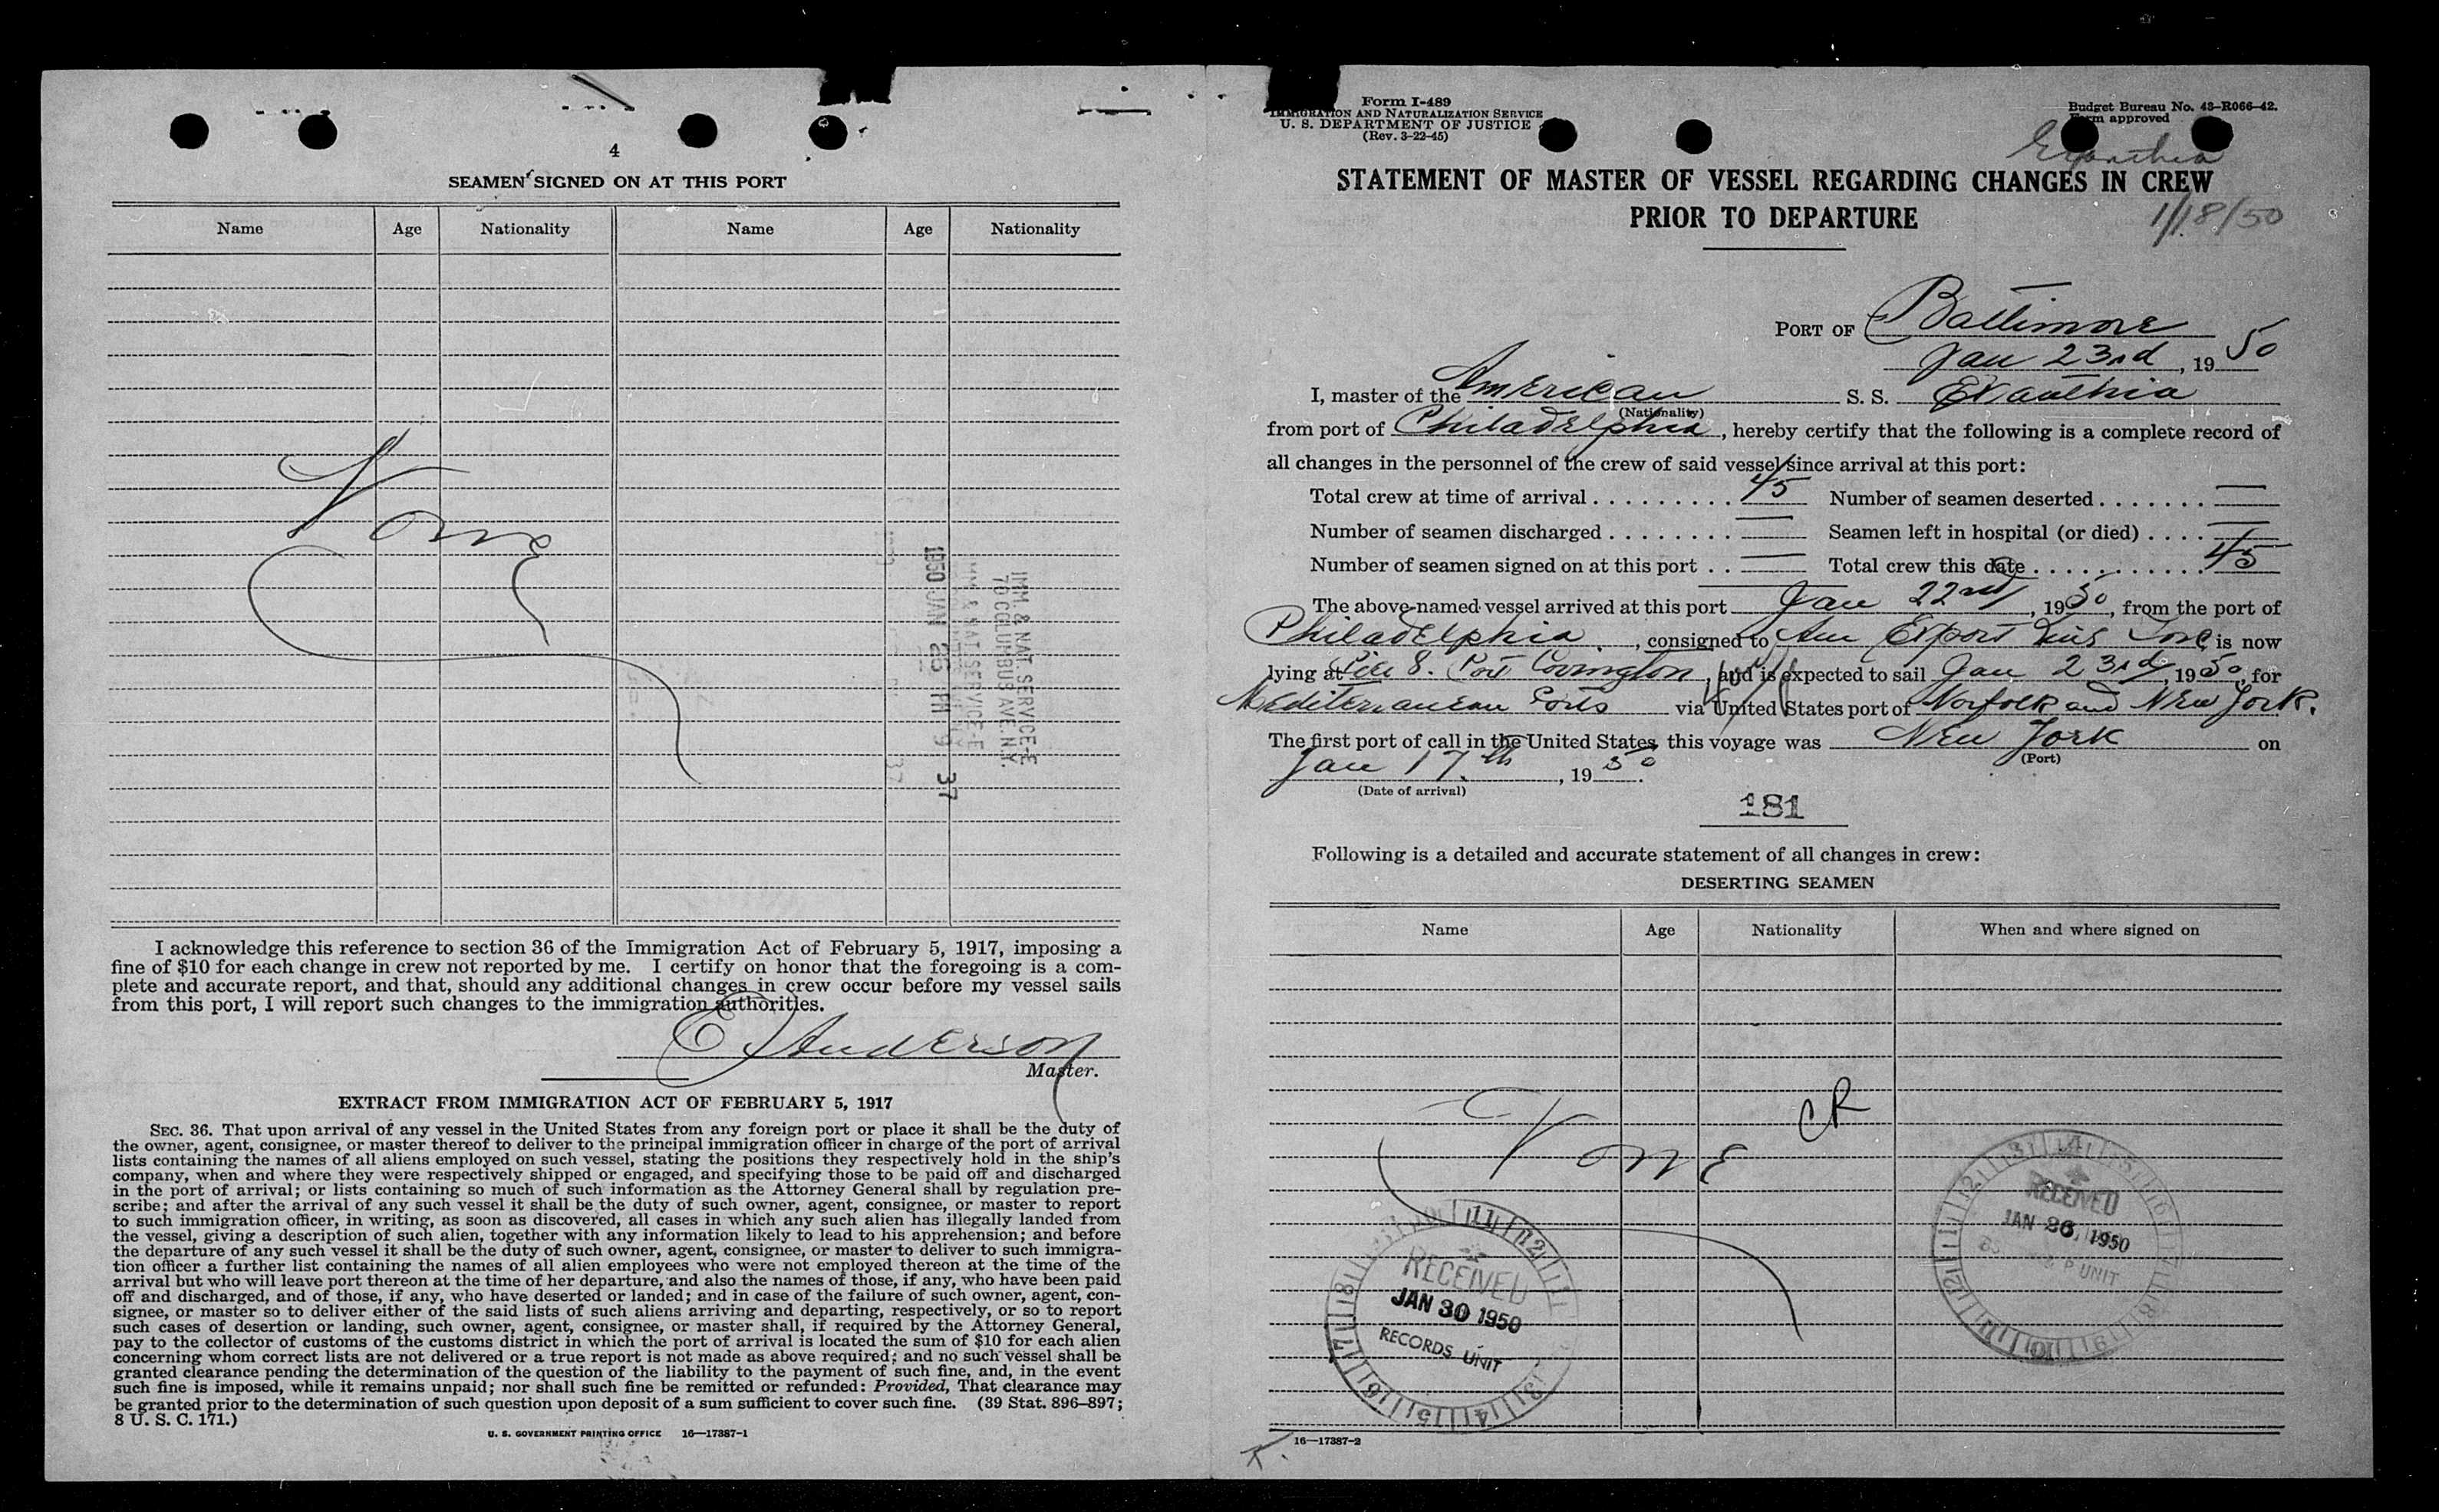 4
SEAMEN SIGNED ON AT THIS PORT
Name Age Nationality Name Age Nationality
None
IMM. & NAT. SERVICE-E
70 COLUMBUS AVE. N.Y.
1950 JAN 26 PM 9 37
I acknowledge this reference to section 36 of the Immigration Act of February 5, 1917, imposing a
fine of $10 for each change in crew not reported by me. I certify on honor that the foregoing is a com-
plete and accurate report, and that, should any additional changes in crew occur before my vessel sails
from this port, I will report such changes to the immigration authorities.
E Anderson
Master.
EXTRACT FROM IMMIGRATION ACT OF FEBRUARY 5, 1917
SEC. 36. That upon arrival of any vessel in the United States from any foreign port or place it shall be the duty of
the owner, agent, consignee, or master thereof to deliver to the principal immigration officer in charge of the port of arrival
lists containing the names of all aliens employed on such vessel, stating the positions they respectively hold in the ship's
company, when and where they were respectively shipped or engaged, and specifying those to be paid off and discharged
in the port of arrival; or lists containing so much of such information as the Attorney General shall by regulation pre-
scribe; and after the arrival of any such vessel it shall be the duty of such owner, agent, consignee, or master to report
to such immigration officer, in writing, as soon as discovered, all cases in which any such alien has illegally landed from
the vessel, giving a description of such alien, together with any information likely to lead to his apprehension; and before
the departure of any such vessel it shall be the duty of such owner, agent, consignee, or master to deliver to such immigra-
tion officer a further list containing the names of all alien employees who were not employed thereon at the time of the
arrival but who will leave port thereon at the time of her departure, and also the names of those, if any, who have been paid
off and discharged, and of those, if any, who have deserted or landed; and in case of the failure of such owner, agent, con-
signee, or master so to deliver either of the said lists of such aliens arriving and departing, respectively, or so to report
such cases of desertion or landing, such owner, agent, consignee, or master shall, if required by the Attorney General,
pay to the collector of customs of the customs district in which the port of arrival is located the sum of $10 for each alien
concerning whom correct lists are not delivered or a true report is not made as above required; and no such vessel shall be
granted clearance pending the determination of the question of the liability to the payment of such fine, and, in the event
such fine is imposed, while it remains unpaid; nor shall such fine be remitted or refunded: Provided, That clearance may
be granted prior to the determination of such question upon deposit of a sum sufficient to cover such fine. (39 Stat. 896–897;
8 U. S. C. 171.)
U. S. GOVERNMENT PRINTING OFFICE 16—17387-1
Form I-489
IMMIGRATION AND NATURALIZATION SERVICE
U. S. DEPARTMENT OF JUSTICE
(Rev. 3-22-45)
Budget Bureau No. 43-R066-42.
Form approved
Exanthia
STATEMENT OF MASTER OF VESSEL REGARDING CHANGES IN CREW
PRIOR TO DEPARTURE
1/18/50
PORT OF Baltimore
Jan 23rd, 1950
I, master of the American S. S. Exanthia
(Nationality)
from port of Philadelphia, hereby certify that the following is a complete record of
all changes in the personnel of the crew of said vessel since arrival at this port:
Total crew at time of arrival 45 Number of seamen deserted —
Number of seamen discharged — Seamen left in hospital (or died) —
Number of seamen signed on at this port — Total crew this date 45
The above-named vessel arrived at this port Jan 22nd, 1950, from the port of
Philadelphia, consigned to Am Export Lines is now
lying at Pier 8. Port Covington, and is expected to sail Jan 23rd, 1950, for
Mediterranean Ports via United States port of Norfolk and New York.
The first port of call in the United States this voyage was New York on
(Port)
Jan 17th, 1950.
(Date of arrival)
181
Following is a detailed and accurate statement of all changes in crew:
DESERTING SEAMEN
Name Age Nationality When and where signed on
CR
None
RECEIVED
JAN 26 1950
P UNIT
RECEIVED
JAN 30 1950
RECORDS UNIT
16—17387-2